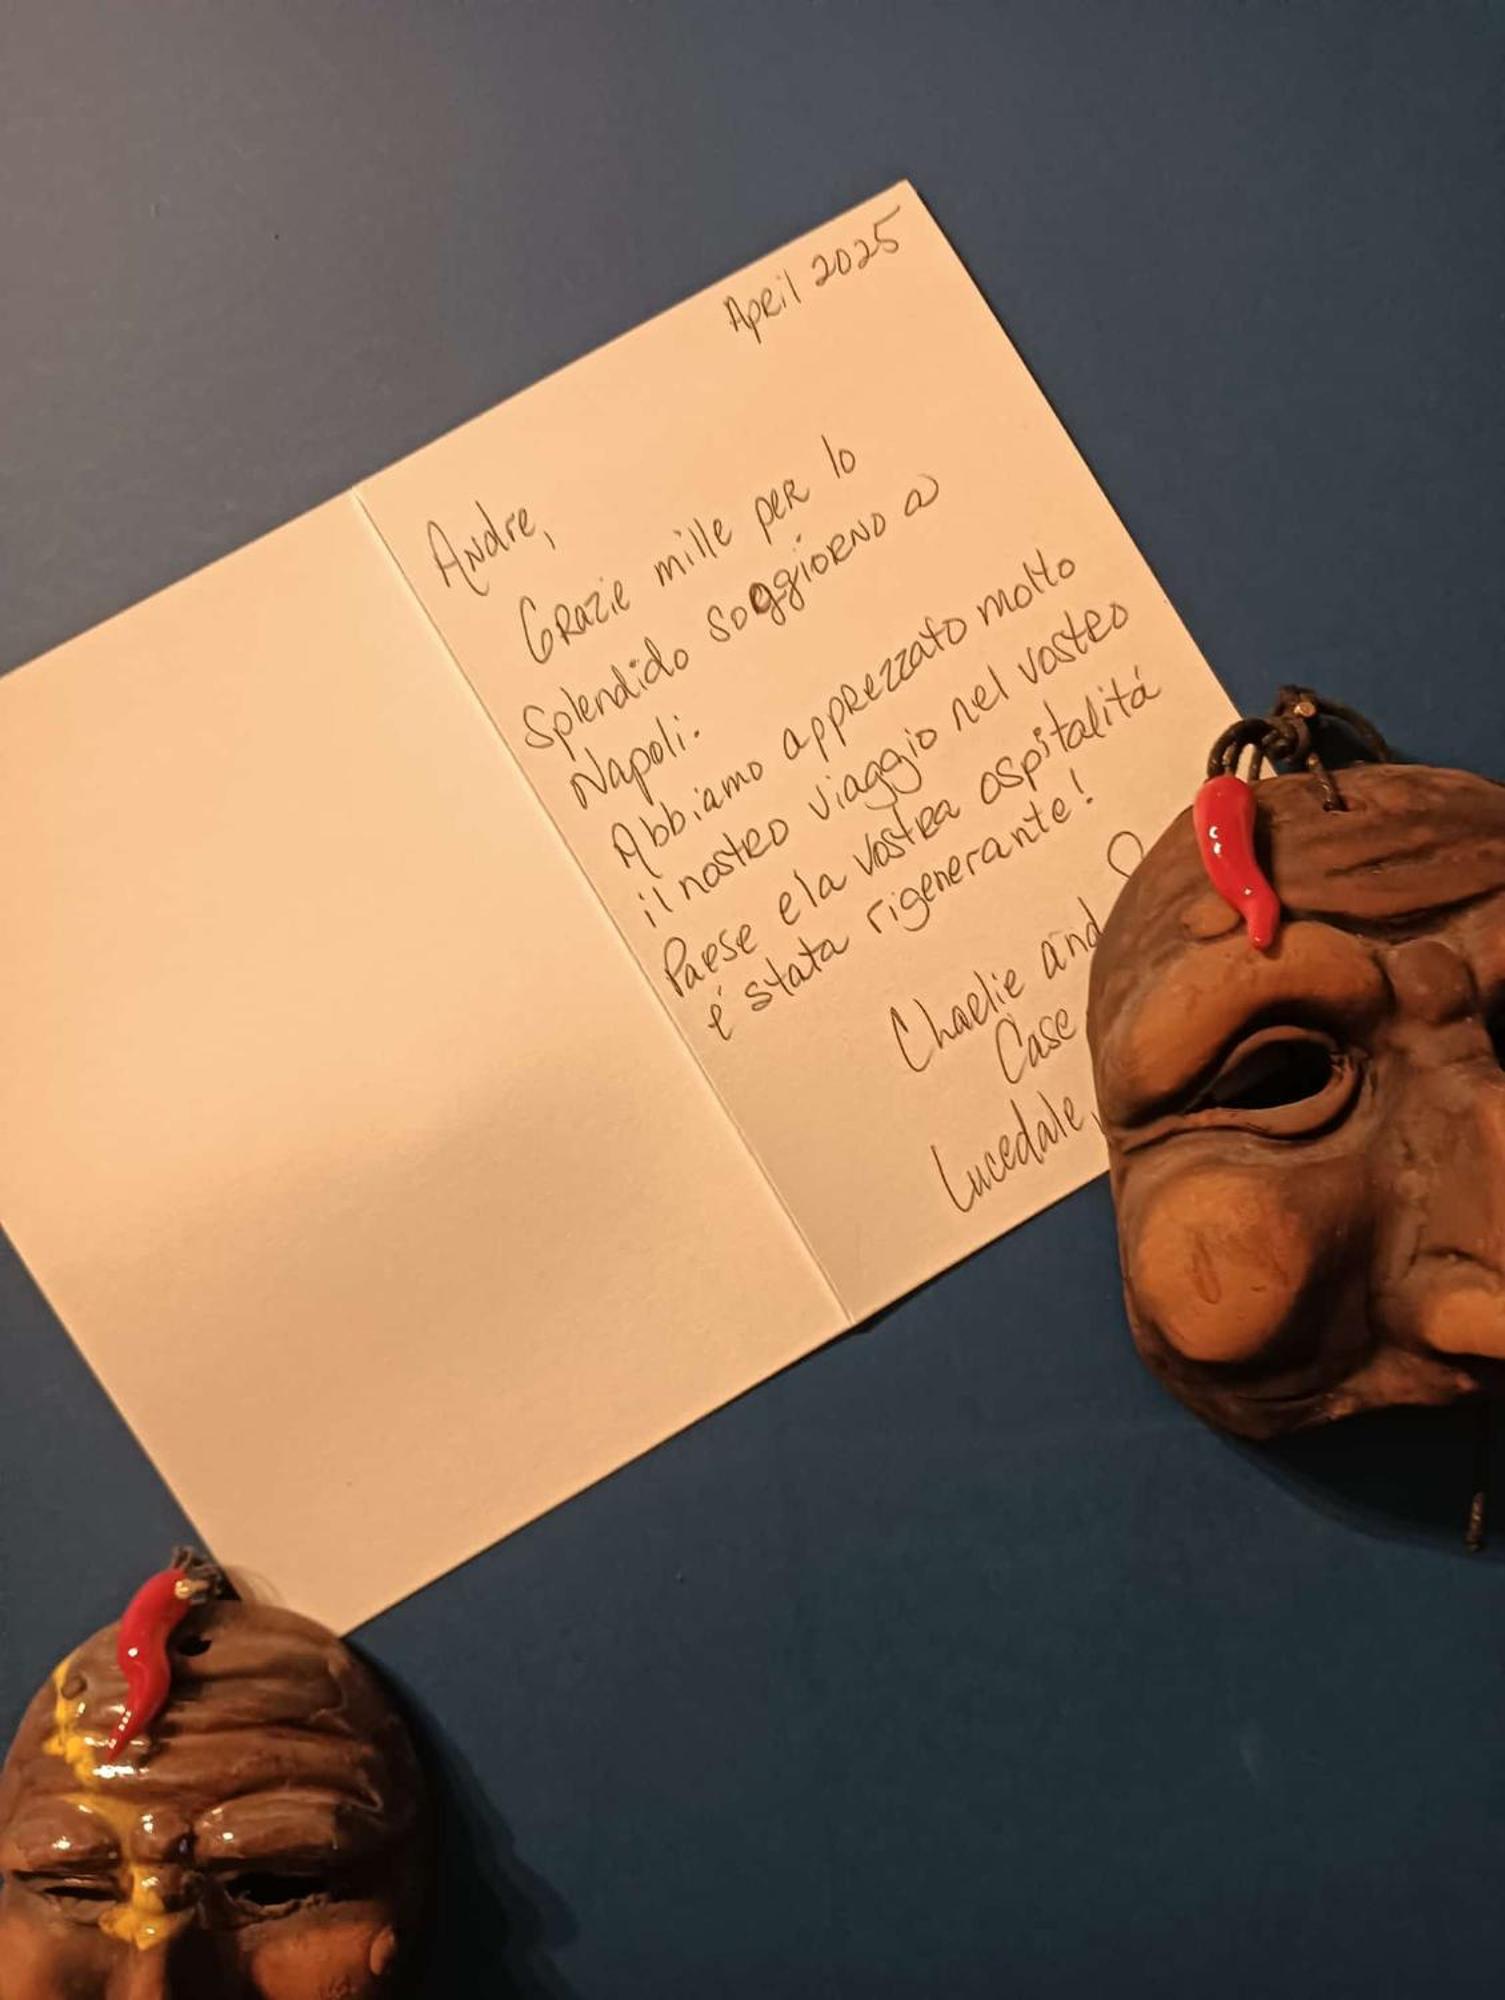 April 2025
Andre,
Grazie mille per lo
splendido soggiorno a
Napoli.
Abbiamo apprezzato molto
il nostro viaggio nel vostro
Paese e la vostra ospitalitá
é stata rigenerante!
Charlie and
Case
Lucedale,